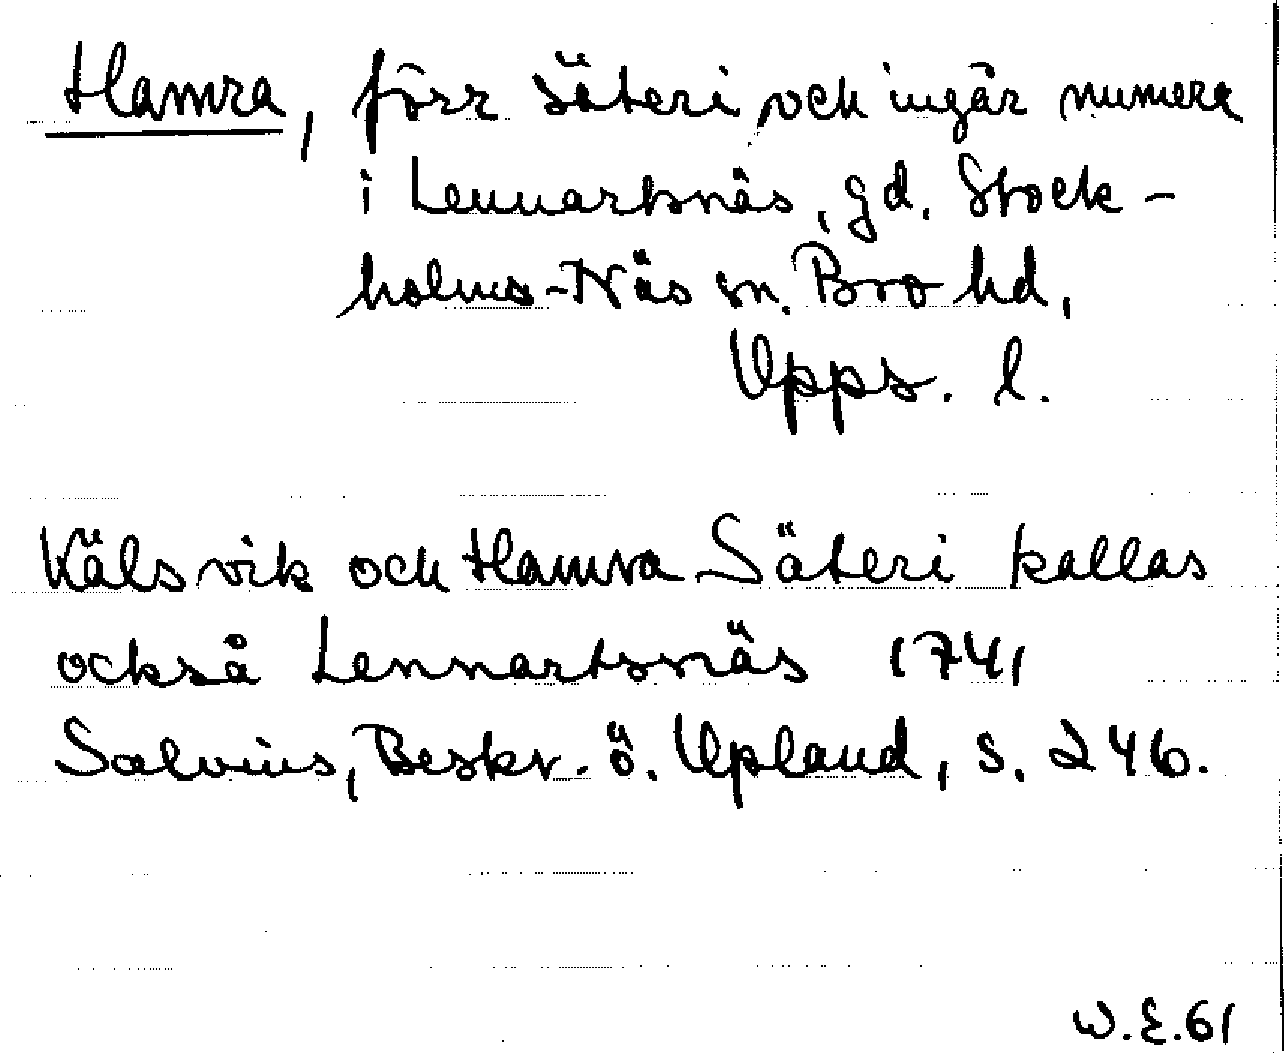 Hamra, förr säteri och ingår numera
i Lennartsnäs, gd. Stock-
holms-Näs sn. Bro hd,
Upps. l.
Kälsvik och Hamra Säteri kallas
också Lennartsnäs 1741
Salvius, Beskr. ö. Upland, s. 246.
W.E.61